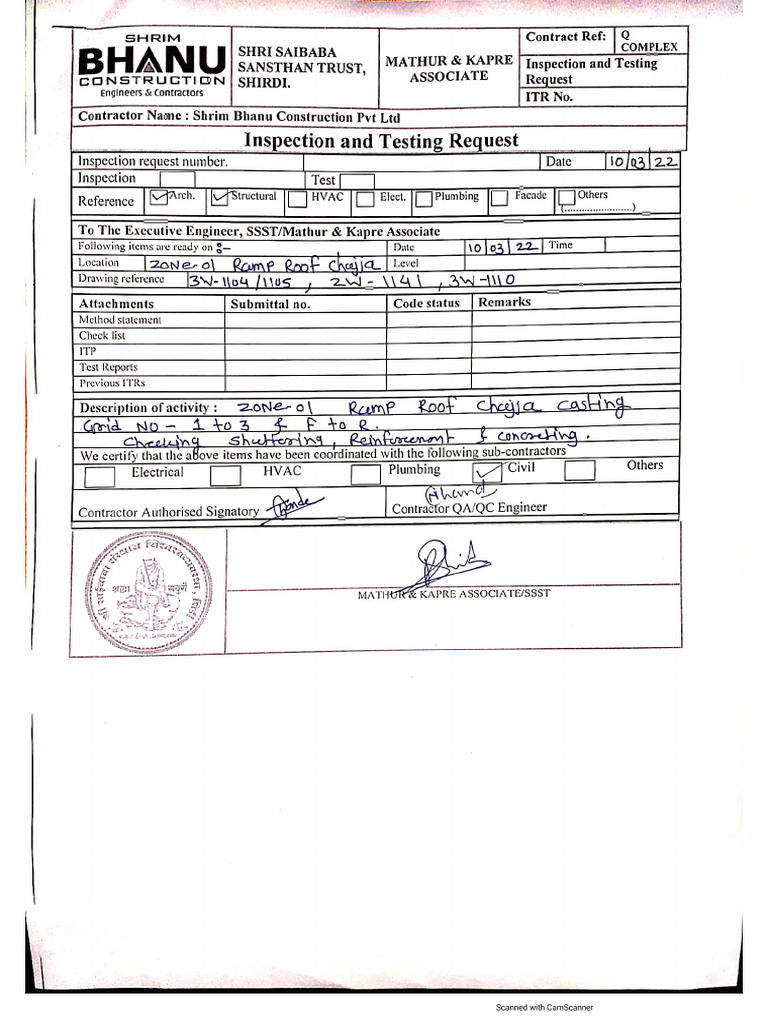 SHRIM
BHANU
CONSTRUCTION
Engineers & Contractors
SHRI SAIBABA
SANSTHAN TRUST,
SHIRDI.
MATHUR & KAPRE
ASSOCIATE
Contract Ref: Q COMPLEX
Inspection and Testing
Request
ITR No.
Contractor Name : Shrim Bhanu Construction Pvt Ltd
Inspection and Testing Request
Inspection request number. Date 10/03/22
Inspection Test
Reference Arch. Structural HVAC Elect. Plumbing Facade Others
(........................)
To The Executive Engineer, SSST/Mathur & Kapre Associate
Following items are ready on :- Date 10/03/22 Time
Location ZONE-01 Ramp Roof Chajja Level
Drawing reference 3W-1104/1105, 2W-1141, 3W-1110
Attachments Submittal no. Code status Remarks
Method statement
Check list
ITP
Test Reports
Previous ITRs
Description of activity : ZONE-01 Ramp Roof Chajja casting
Grid NO - 1 to 3 & F to R.
Checking Shuttering, Reinforcement & concreting.
We certify that the above items have been coordinated with the following sub-contractors
Electrical HVAC Plumbing Civil Others
Contractor Authorised Signatory
Contractor QA/QC Engineer
MATHUR & KAPRE ASSOCIATE/SSST
श्री साईबाबा संस्थान विश्वस्तव्यवस्था, शिर्डी
श्रद्धा सबुरी
Scanned with CamScanner